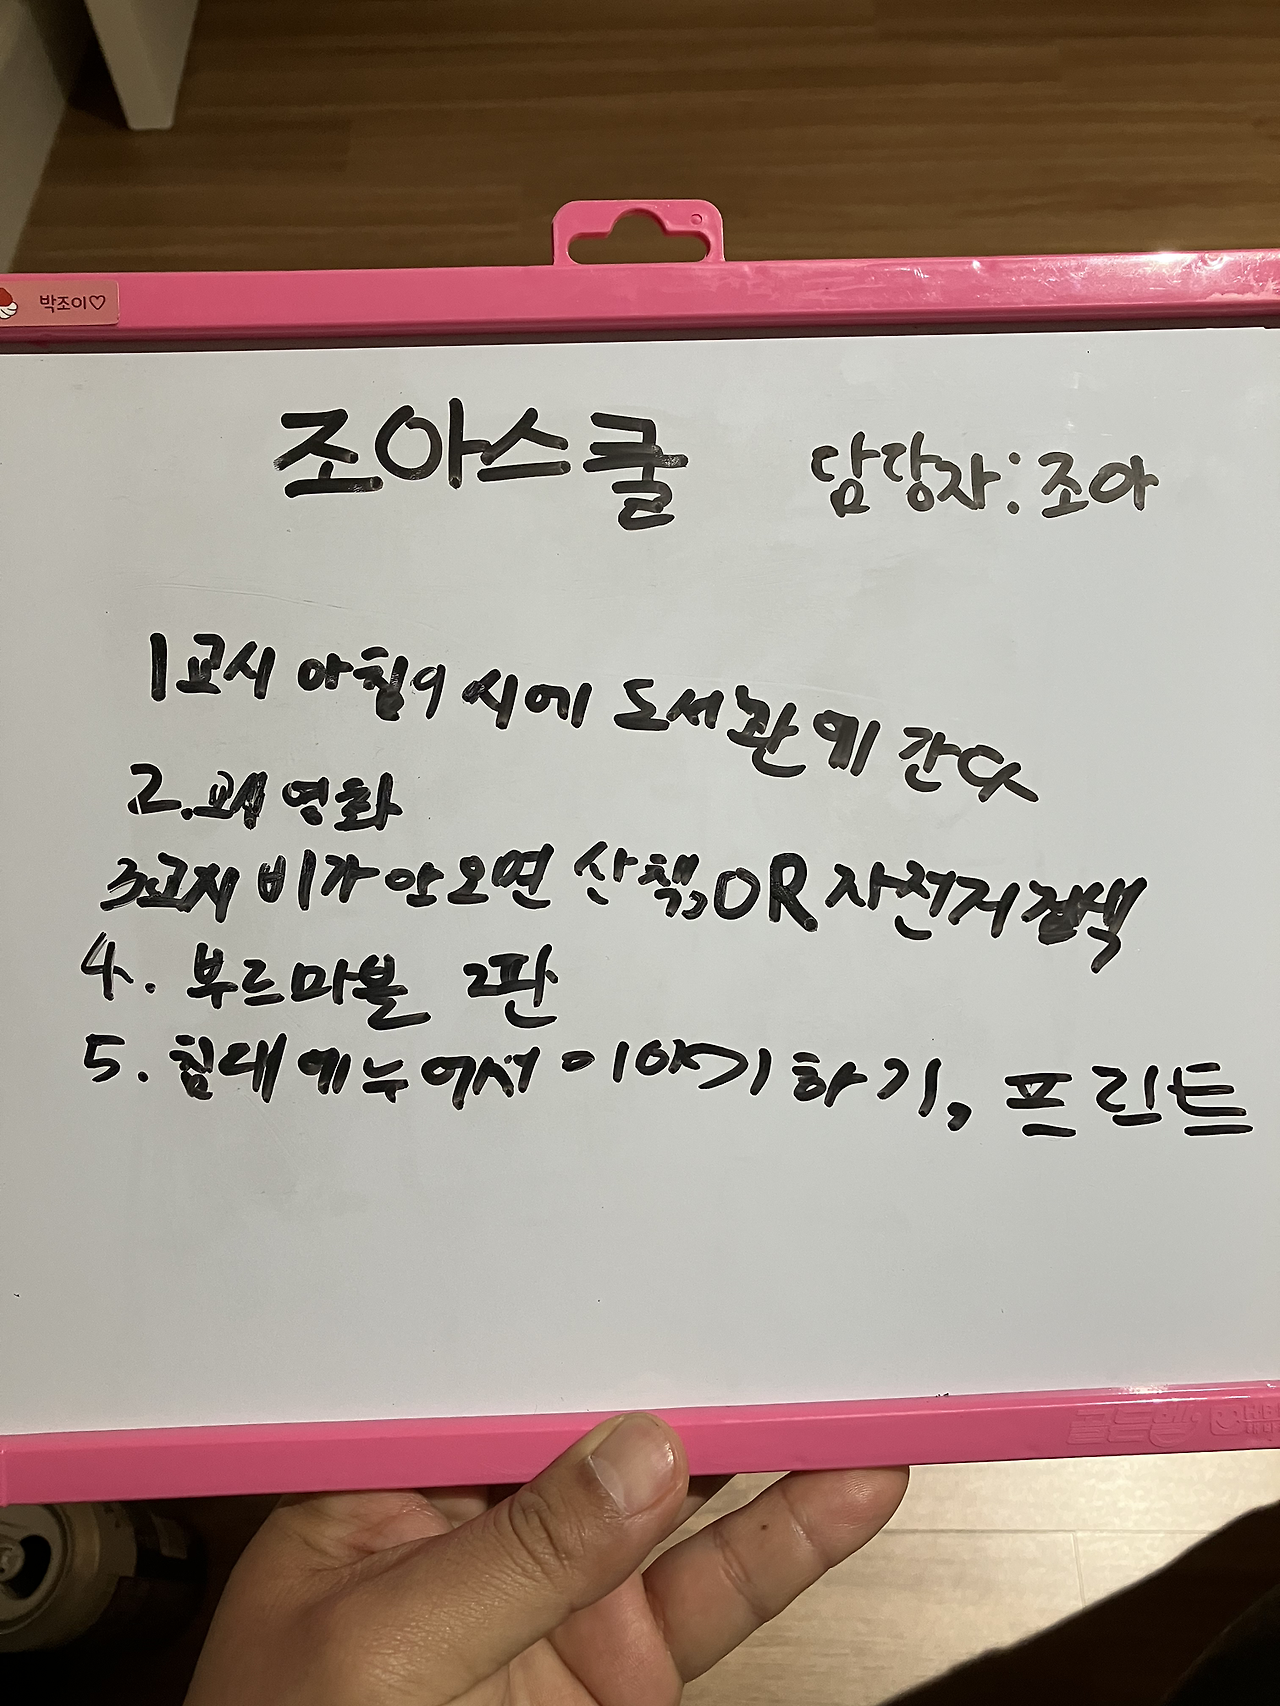 박조이♡
조아스쿨 담당자:조아
1교시 아침9시에 도서관에 간다
2.교시 영화
3교시 비가 안오면 산책,OR 자전거 검색
4. 부르마블 2판
5. 침대에누어서 이야기하기, 프린트
골든벨